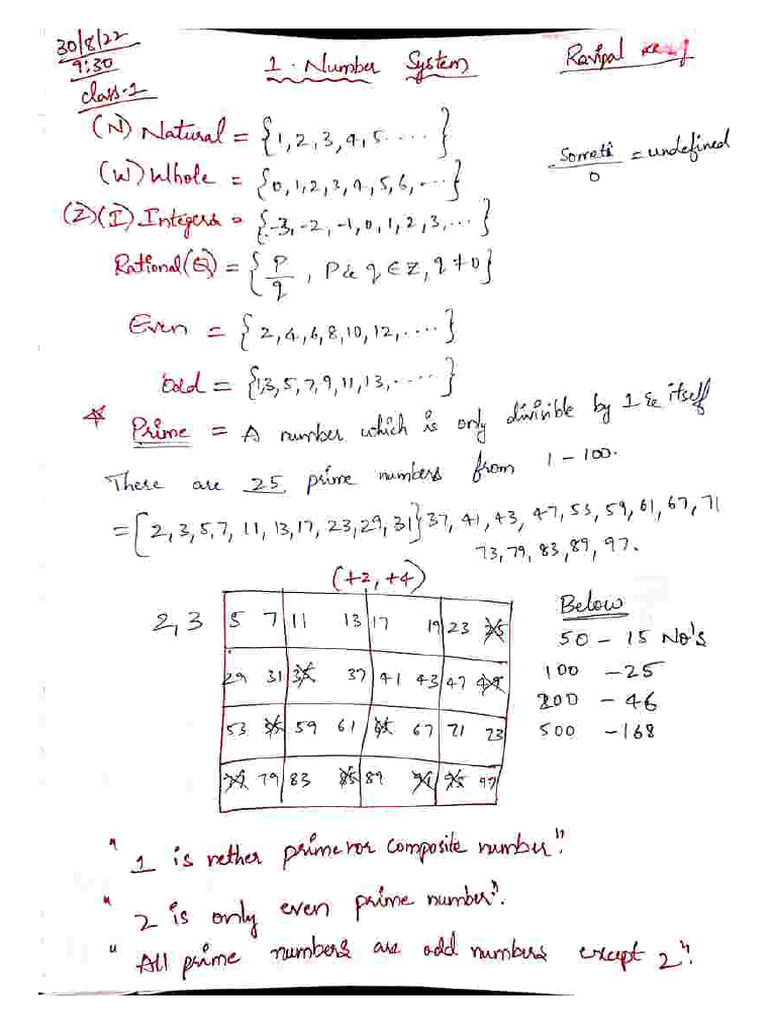 30/8/22
9:30
class-1
1. Number System
(N) Natural = {1, 2, 3, 4, 5 .....}
(W) Whole = {0, 1, 2, 3, 4, 5, 6, ....}
Someti/0 = undefined
(Z)(I) Integers = {-3, -2, -1, 0, 1, 2, 3, ...}
Rational(Q) = {P/q , P & q ∈ Z, q ≠ 0}
Even = {2, 4, 6, 8, 10, 12, ....}
Odd = {1,3, 5, 7, 9, 11, 13, .....}
* Prime = A number which is only divisible by 1 & itself
There are 25 prime numbers from 1 - 100.
= [2, 3, 5, 7, 11, 13, 17, 23, 29, 31} 37, 41, 43, 47, 53, 59, 61, 67, 71
73, 79, 83, 89, 97.
(+2, +4)
2, 3
5 7 11 13 17 19 23 25
29 31 35 37 41 43 47 49
53 55 59 61 65 67 71 73
79 83 85 89 91 95 97
Below
50 - 15 No's
100 - 25
200 - 46
500 - 168
" 1 is nether prime nor composite number".
" 2 is only even prime number".
" All prime numbers are odd numbers except 2".